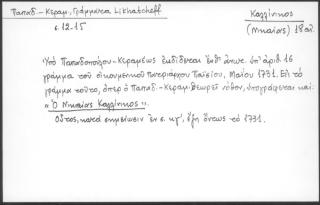 Παπαδ.-Κεραμ., Γράμματα Likhatcheff
σ. 12-15
Καλλίνικος
(Μηαίας) 18 αἰ.
Ὑπὸ Παπαδοπούλου-Κεραμέως ἐκδίδεται ἔνθ' ἀνωτ. ὑπ' ἀριθ. 16
γράμμα τοῦ οἰκουμενικοῦ Πατριάρχου Παϊσίου, Μαΐου 1731. Εἰς τὸ
γράμμα τοῦτο, ὅπερ ὁ Παπαδ.-Κεραμ. θεωρεῖ νόθον, ὑπογράφεται καὶ:
«Ὁ Μηαίας Καλλίνικος».
Οὗτος, κατὰ σημείωσιν ἐν σ. κγ', ἔζη ὄντως τὸ 1731.